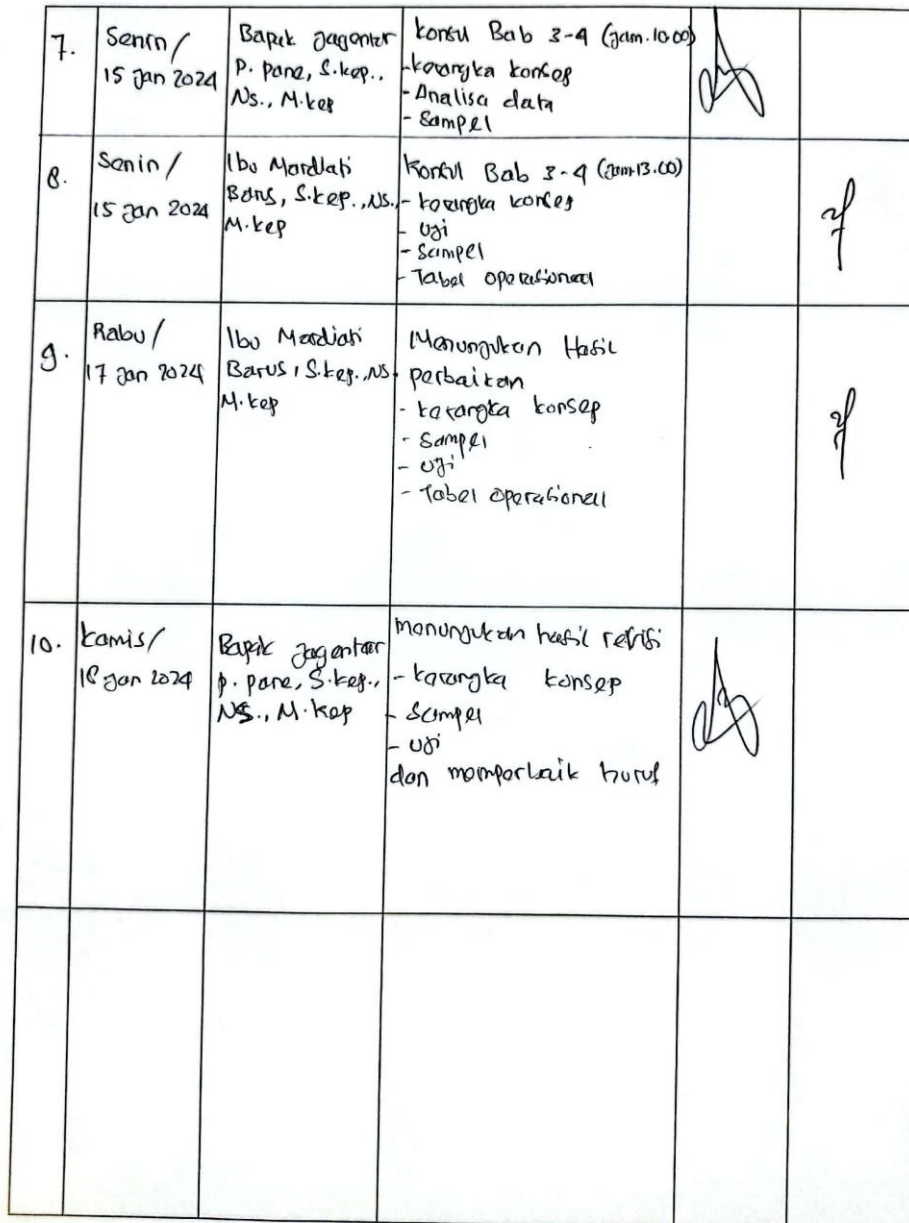 7.
Senin /
15 Jan 2024
Bapak Jagentar
P. Pane, S.kep.,
Ns., M.kep
Konsul Bab 3-4 (Jam. 10.00)
- kerangka konsep
- Analisa data
- Sampel
8.
Senin /
15 Jan 2024
Ibu Mardiati
Barus, S.kep., Ns.,
M.kep
Konsul Bab 3-4 (Jam 13.00)
- kerangka konsep
- Uji
- Sampel
- Tabel operasional
9.
Rabu /
17 Jan 2024
Ibu Mardiati
Barus, S.kep., Ns.
M.kep
Menunjukan Hasil
perbaikan
- kerangka konsep
- Sampel
- Uji
- Tabel operasional
10.
Kamis /
18 Jan 2024
Bapak Jagentar
p. pane, S.kep.,
NS., M.kep
menunjukan hasil refisi
- kerangka konsep
- Sampel
- Uji
dan memperbaik huruf